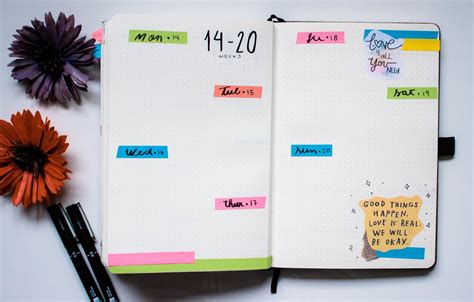 Mon • 14
14-20
Tue • 15
Wed • 16
Thur • 17
Fri • 18
Love
is all
You
NEED
Sat • 19
Sun • 20
GOOD THINGS
HAPPEN,
LOVE IS REAL.
WE WILL
BE OKAY.